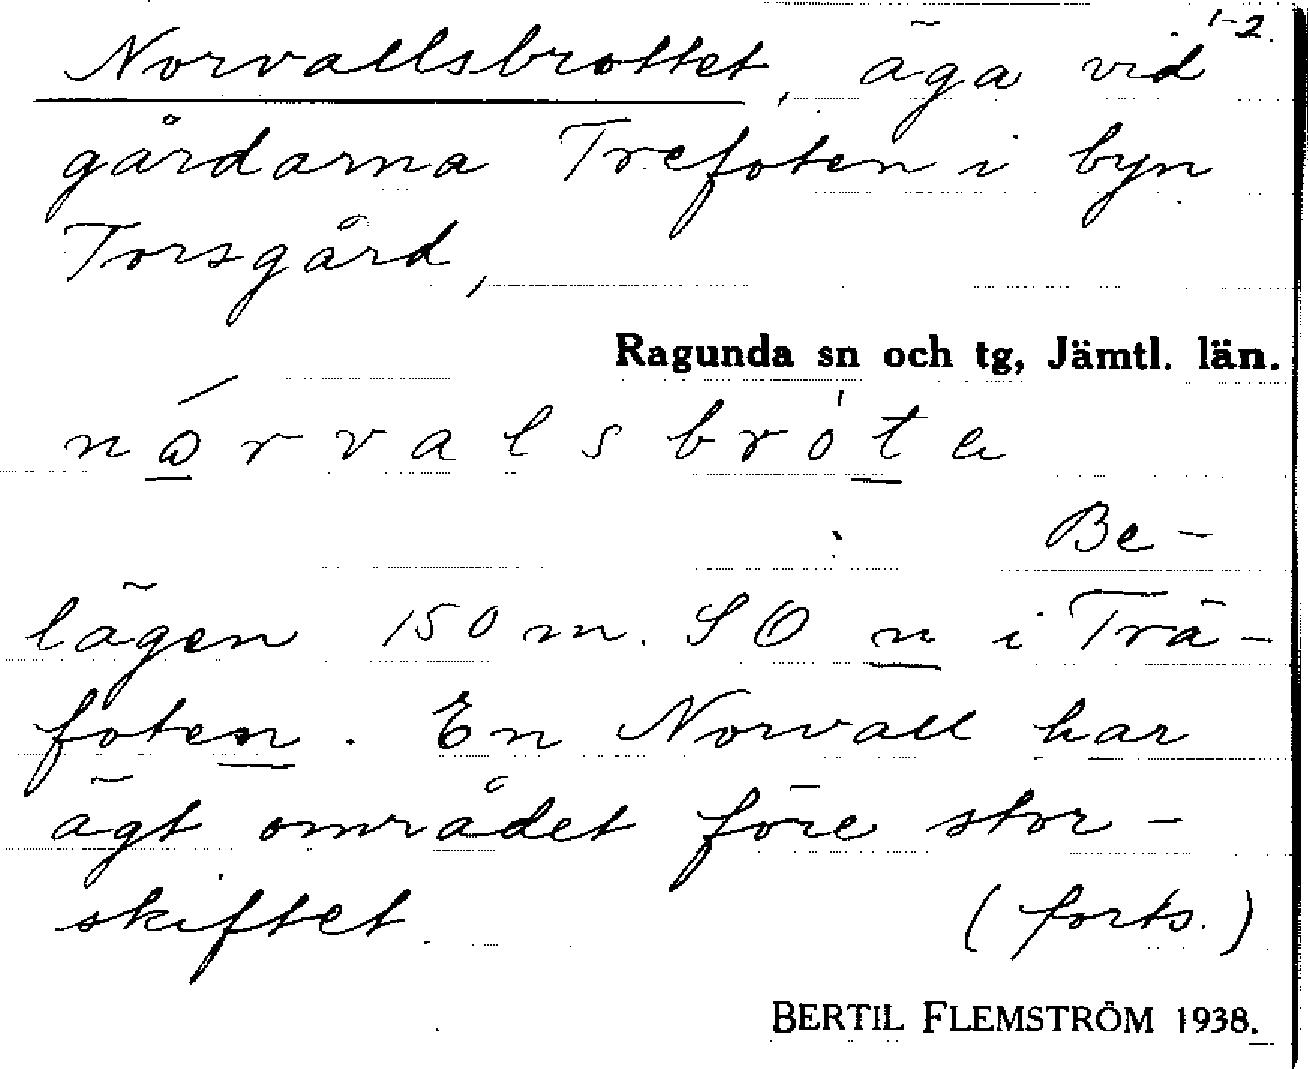 1-2.
Norvallsbrottet, äga vid
gårdarna Trefoten i byn
Torsgård,
Ragunda sn och tg, Jämtl. län.
nórvalsbróta
Be-
lägen 150 m. SO n i Trä-
foten. En Norvall har
ägt området före stor-
skiftet. (forts.)
BERTIL FLEMSTRÖM 1938.